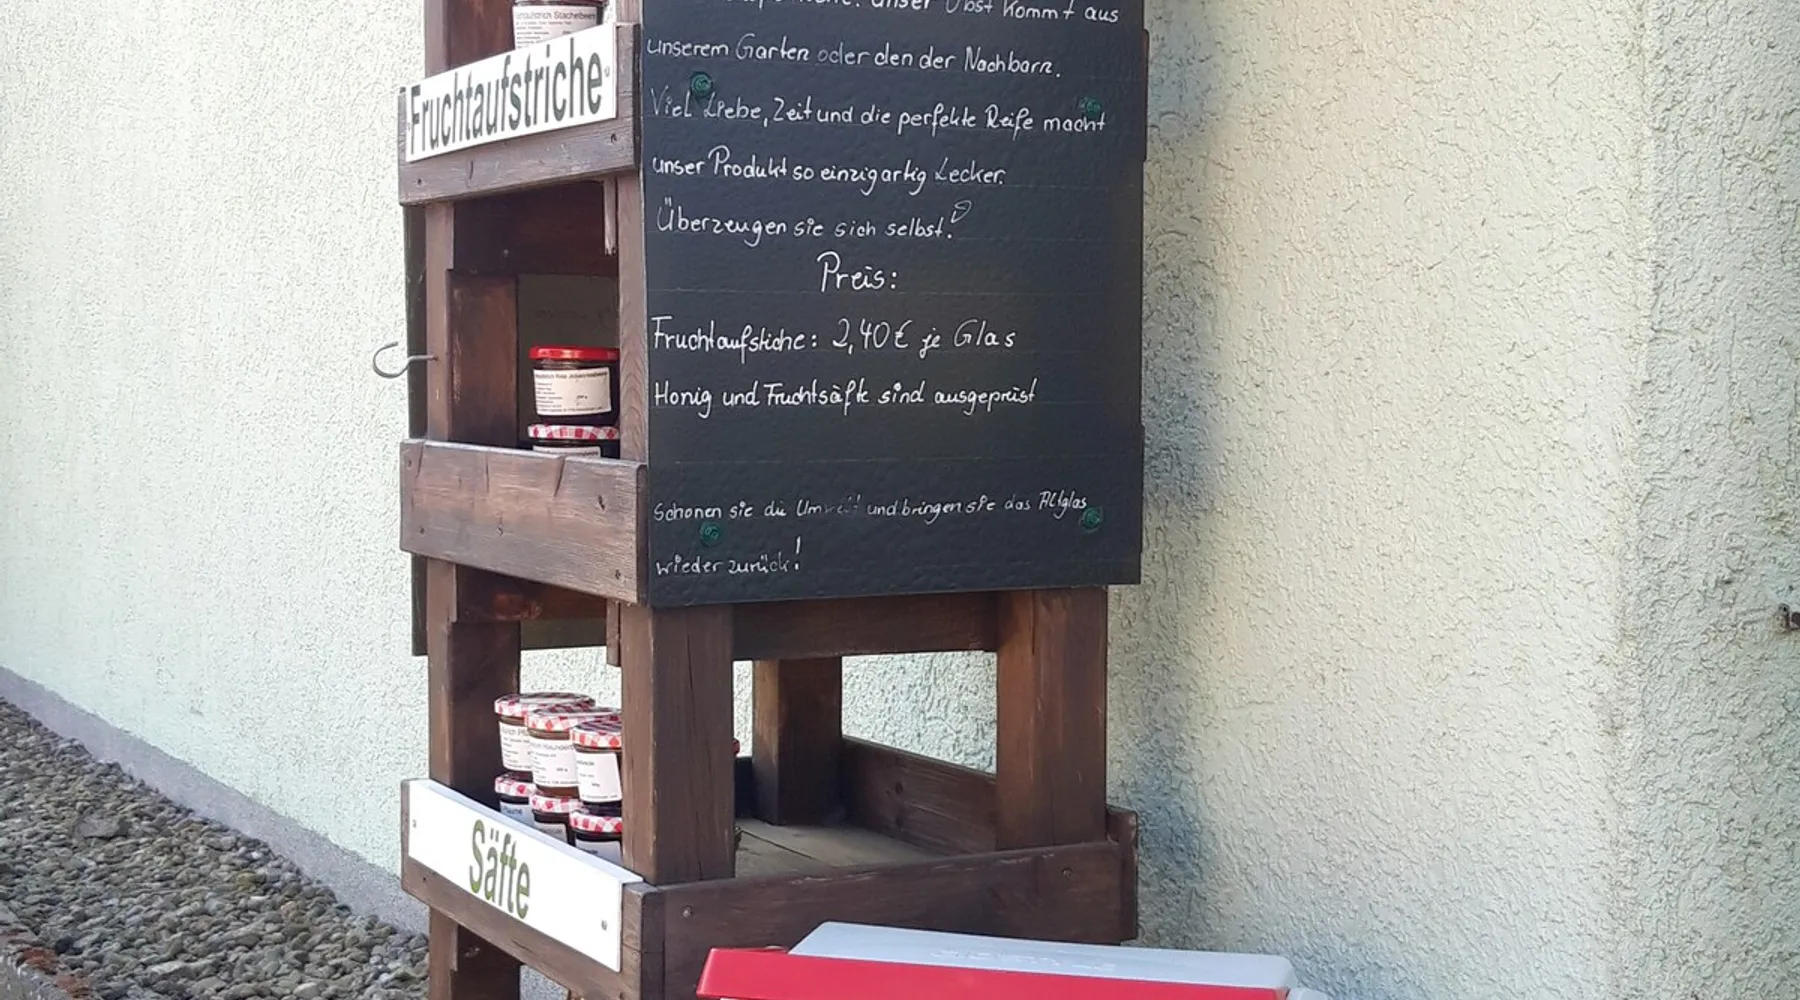 Fruchtaufstrich Stachelbeere
Fruchtaufstriche
Unser Obst kommt aus
unserem Garten oder den der Nachbarn.
Viel Liebe, Zeit und die perfekte Reife macht
unser Produkt so einzigartig Lecker.
Überzeugen sie sich selbst!
Preis:
Fruchtaufstiche: 2,40€ je Glas
Honig und Fruchtsäfte sind ausgepreist
Schonen sie die Umwelt und bringen sie das Altglas
wieder zurück!
Säfte